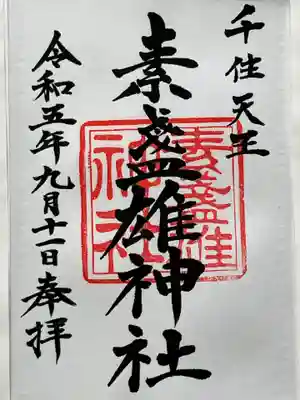 千住天王
素盞雄神社
令和五年九月十一日奉拝
素盞雄
神社